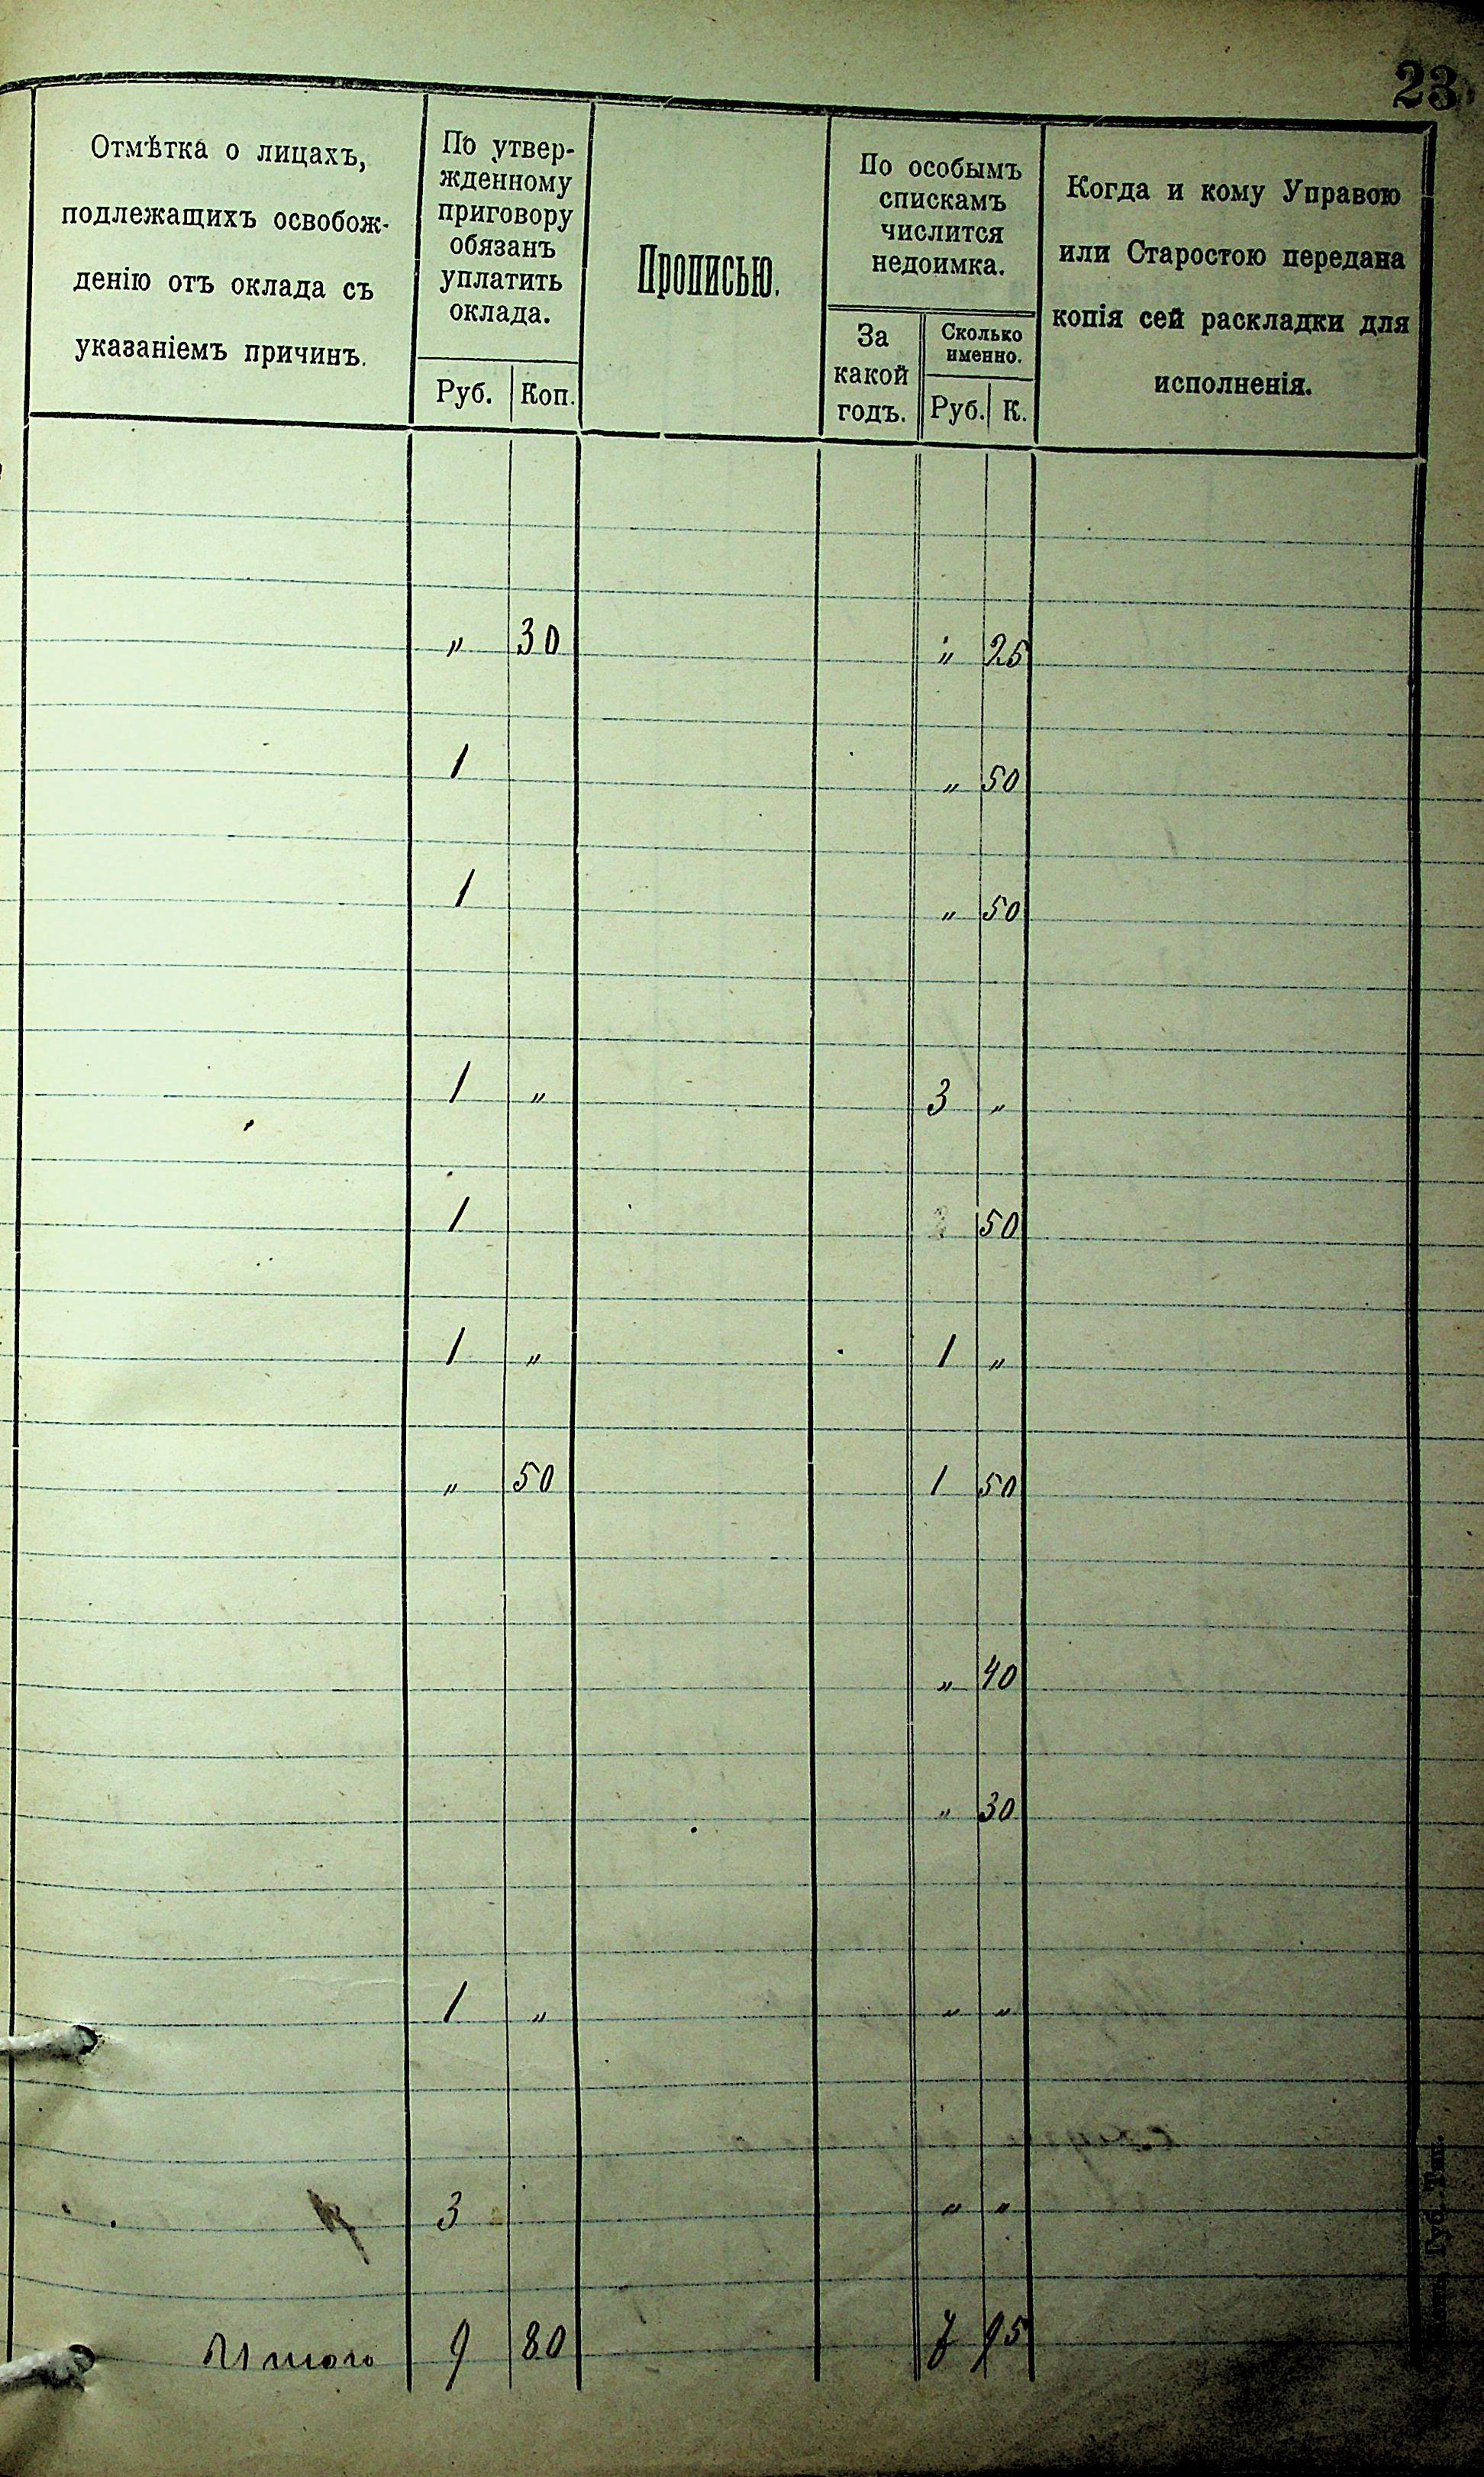 23
Отмѣтка о лицахъ,
подлежащихъ освобож-
денію отъ оклада съ
указаніемъ причинъ.
По утвер-
жденному
приговору
обязанъ
уплатить
оклада.
Руб. Коп.
Прописью.
По особымъ
спискамъ
числится
недоимка.
За
какой
годъ.
Сколько
именно.
Руб. К.
Когда и кому Управою
или Старостою передана
копія сей раскладки для
исполненія.
" 30 " 25
1 " 50
1 " 50
1 " 3 "
1 50
1 " 1 "
" 50 1 50
" 40
" 30
1 " " "
3 " "
Итого 9 80 7 95
Губ. Тип.